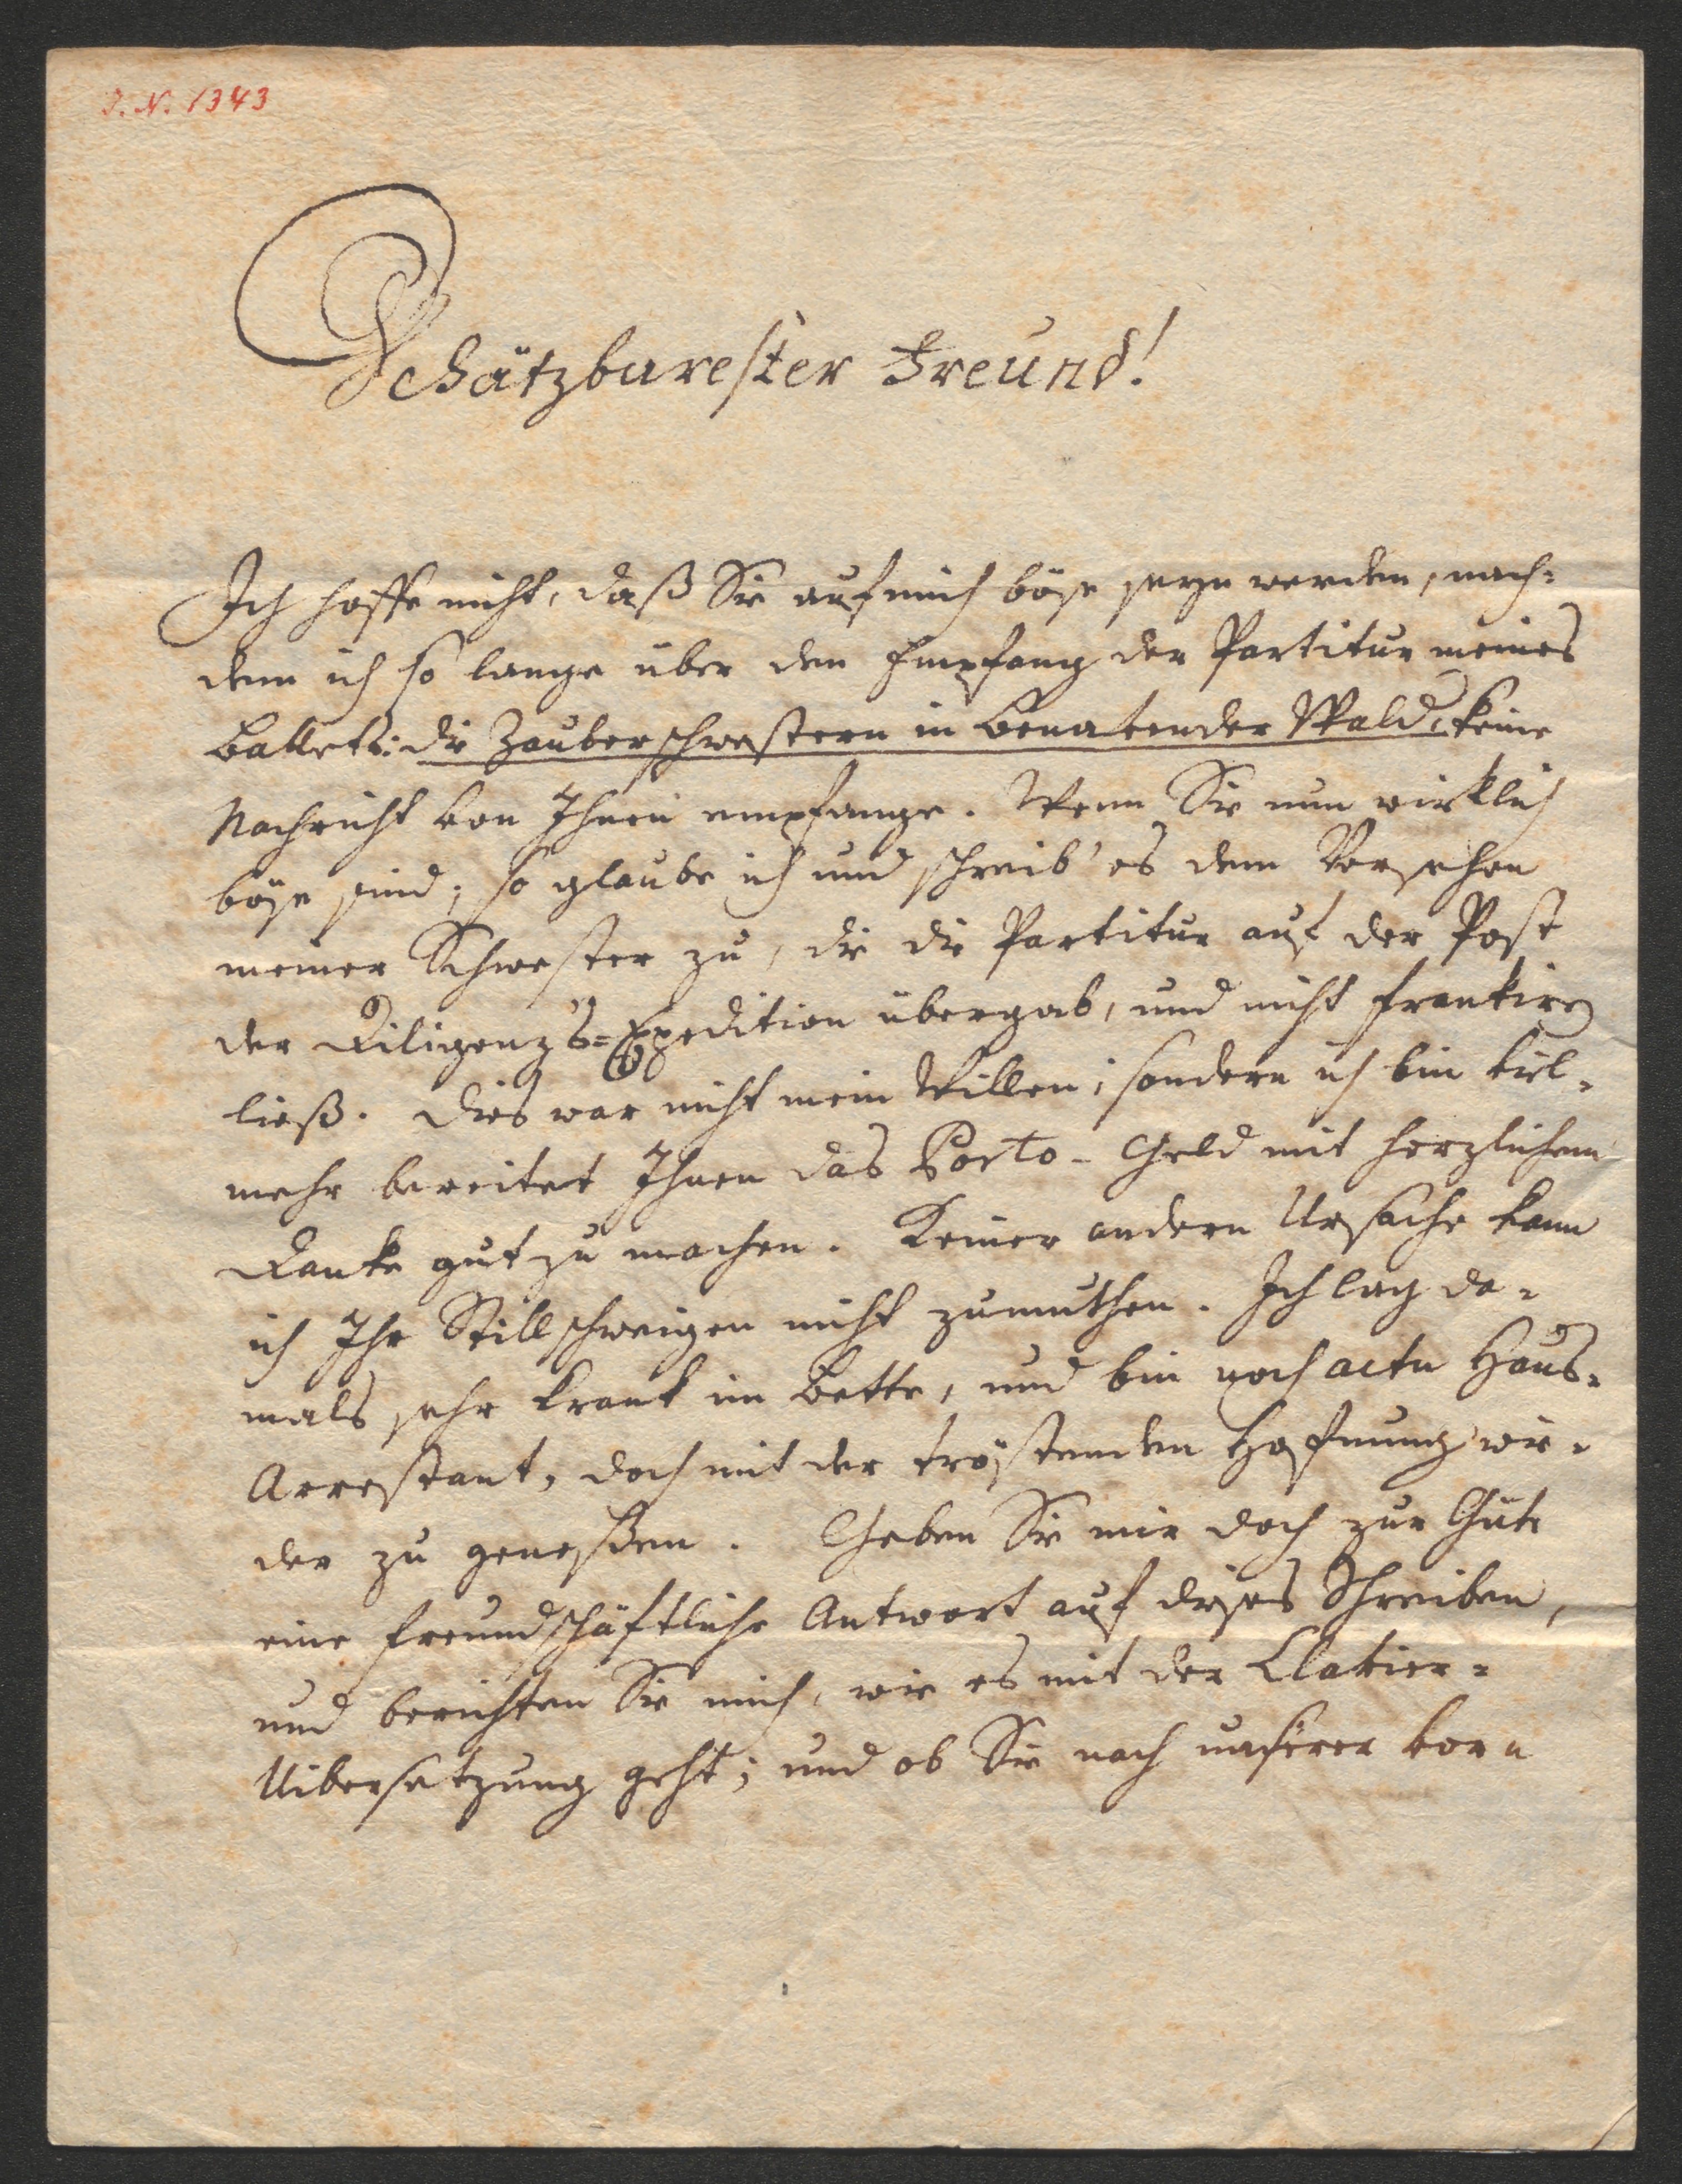 I. N. 1343
Schätzbarester Freund!
Ich hoffe nicht, daß Sie auf mich böse seyn werden, nach=
dem ich so lange über den Empfang der Partitur meines
Ballets: die Zauberschwestern in Beneventer Wald, keine
Nachricht von Ihnen empfange. Wenn Sie nun wirklich
böse sind; so glaube ich und schreib' es dem Versehen
meiner Schwester zu, die die Partitur auf der Post
der Diligenz's=Expedition übergab, und nicht frankiren
ließ. Dies war nicht mein Willen; sondern ich bin viel=
mehr bereitet Ihnen das Porto-Geld mit herzlichem
Danke gut zu machen. Keiner andern Ursache kann
ich Ihr Stillschweigen nicht zumuthen. Ich lag da=
mals sehr krank im Bette, und bin noch actu Haus=
Arrestant, doch mit der tröstenden Hofnung wie=
der zu geneßen. Geben Sie mir doch zur Güte
eine freundschäftliche Antwort auf dieses Schreiben,
und berichten Sie mich, wie es mit der Clavier=
Uibersetzung geht; und ob Sie nach unserer vor=